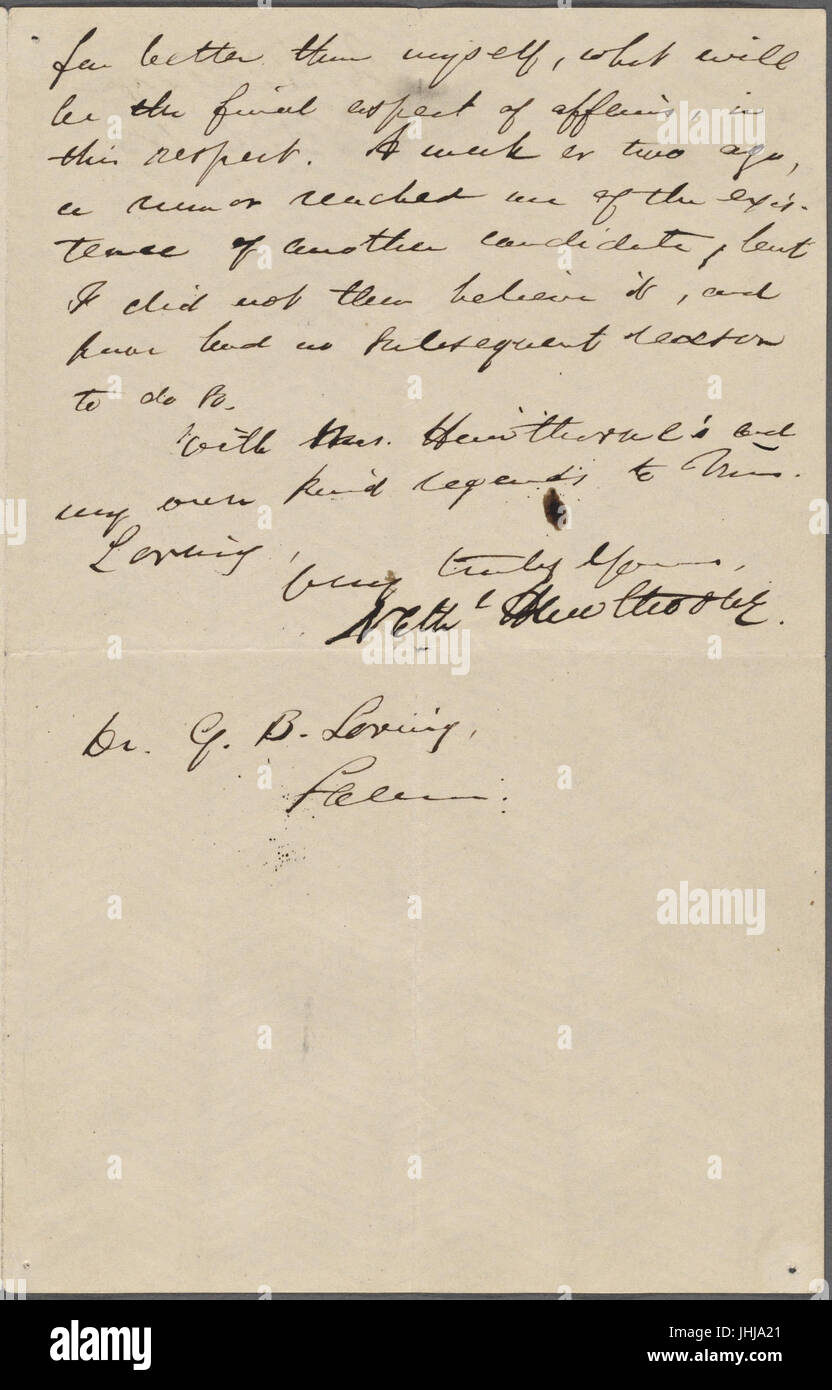 far better than myself, what will
be the final aspect of affairs, in
this respect. A week or two ago,
a rumor reached me of the exis-
tence of another candidate, but
I did not then believe it, and
have had no subsequent reason
to do so.
With Mrs. Hawthorne's and
my own kind regards to Mrs.
Loring,
Very truly Yours,
Nathl Hawthorne.
Dr. G. B. Loring,
Salem.
alamy
alamy
a
a
a
a
a
a
a
a
a
a
a
a
alamy
Image ID: JHJA21
www.alamy.com